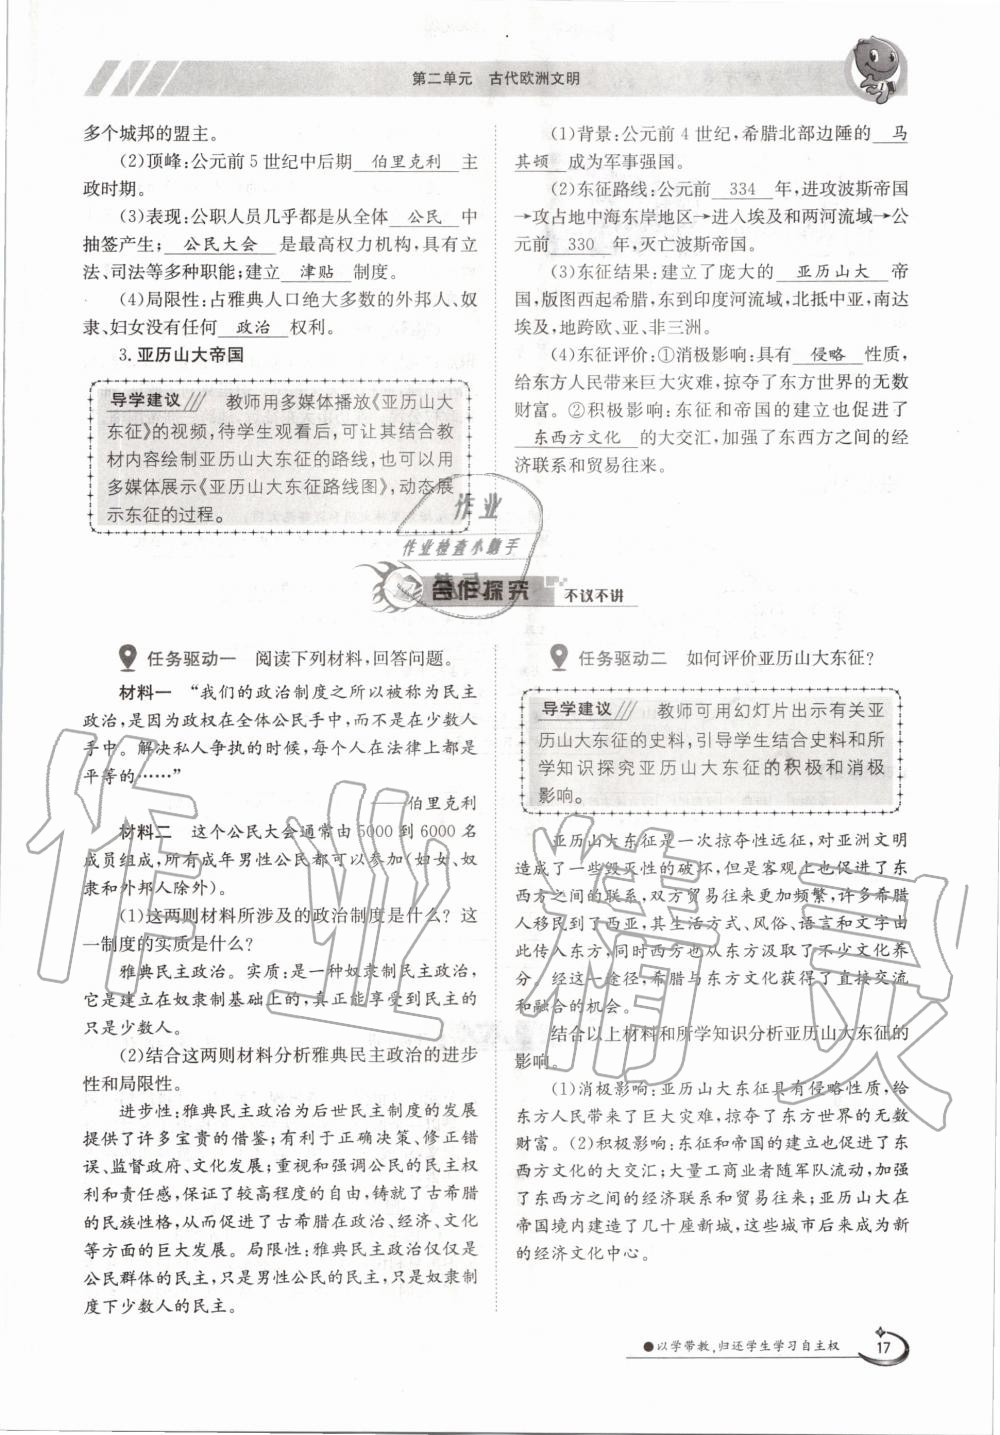 第二单元 古代欧洲文明
多个城邦的盟主。
(2)顶峰:公元前5世纪中后期 伯里克利 主
政时期。
(3)表现:公职人员几乎都是从全体 公民 中
抽签产生; 公民大会 是最高权力机构,具有立
法、司法等多种职能;建立 津贴 制度。
(4)局限性:占雅典人口绝大多数的外邦人、奴
隶、妇女没有任何 政治 权利。
3. 亚历山大帝国
导学建议 教师用多媒体播放《亚历山大
东征》的视频,待学生观看后,可让其结合教
材内容绘制亚历山大东征的路线,也可以用
多媒体展示《亚历山大东征路线图》,动态展
示东征的过程。
(1)背景:公元前4世纪,希腊北部边陲的 马
其顿 成为军事强国。
(2)东征路线:公元前 334 年,进攻波斯帝国
→攻占地中海东岸地区→进入埃及和两河流域→公
元前 330 年,灭亡波斯帝国。
(3)东征结果:建立了庞大的 亚历山大 帝
国,版图西起希腊,东到印度河流域,北抵中亚,南达
埃及,地跨欧、亚、非三洲。
(4)东征评价:①消极影响:具有 侵略 性质,
给东方人民带来巨大灾难,掠夺了东方世界的无数
财富。②积极影响:东征和帝国的建立也促进了
东西方文化 的大交汇,加强了东西方之间的经
济联系和贸易往来。
作业
作业检查小助手
合作探究 不议不讲
任务驱动一 阅读下列材料,回答问题。
材料一 “我们的政治制度之所以被称为民主
政治,是因为政权在全体公民手中,而不是在少数人
手中。解决私人争执的时候,每个人在法律上都是
平等的……”
——伯里克利
材料二 这个公民大会通常由5000到6000名
成员组成,所有成年男性公民都可以参加(妇女、奴
隶和外邦人除外)。
(1)这两则材料所涉及的政治制度是什么?这
一制度的实质是什么?
雅典民主政治。实质:是一种奴隶制民主政治,
它是建立在奴隶制基础上的,真正能享受到民主的
只是少数人。
(2)结合这两则材料分析雅典民主政治的进步
性和局限性。
进步性:雅典民主政治为后世民主制度的发展
提供了许多宝贵的借鉴;有利于正确决策、修正错
误、监督政府、文化发展;重视和强调公民的民主权
利和责任感,保证了较高程度的自由,铸就了古希腊
的民族性格,从而促进了古希腊在政治、经济、文化
等方面的巨大发展。局限性:雅典民主政治仅仅是
公民群体的民主,只是男性公民的民主,只是奴隶制
度下少数人的民主。
任务驱动二 如何评价亚历山大东征?
导学建议 教师可用幻灯片出示有关亚
历山大东征的史料,引导学生结合史料和所
学知识探究亚历山大东征的积极和消极
影响。
亚历山大东征是一次掠夺性远征,对亚洲文明
造成了一些毁灭性的破坏,但是客观上也促进了东
西方之间的联系,双方贸易往来更加频繁,许多希腊
人移民到了西亚,其生活方式、风俗、语言和文字由
此传入东方,同时西方也从东方汲取了不少文化养
分。经这一途径,希腊与东方文化获得了直接交流
和融合的机会。
结合以上材料和所学知识分析亚历山大东征的
影响。
(1)消极影响:亚历山大东征具有侵略性质,给
东方人民带来了巨大灾难,掠夺了东方世界的无数
财富。(2)积极影响:东征和帝国的建立也促进了东
西方文化的大交汇;大量工商业者随军队流动,加强
了东西方之间的经济联系和贸易往来;亚历山大在
帝国境内建造了几十座新城,这些城市后来成为新
的经济文化中心。
作业精灵
●以学带教,归还学生学习自主权 17